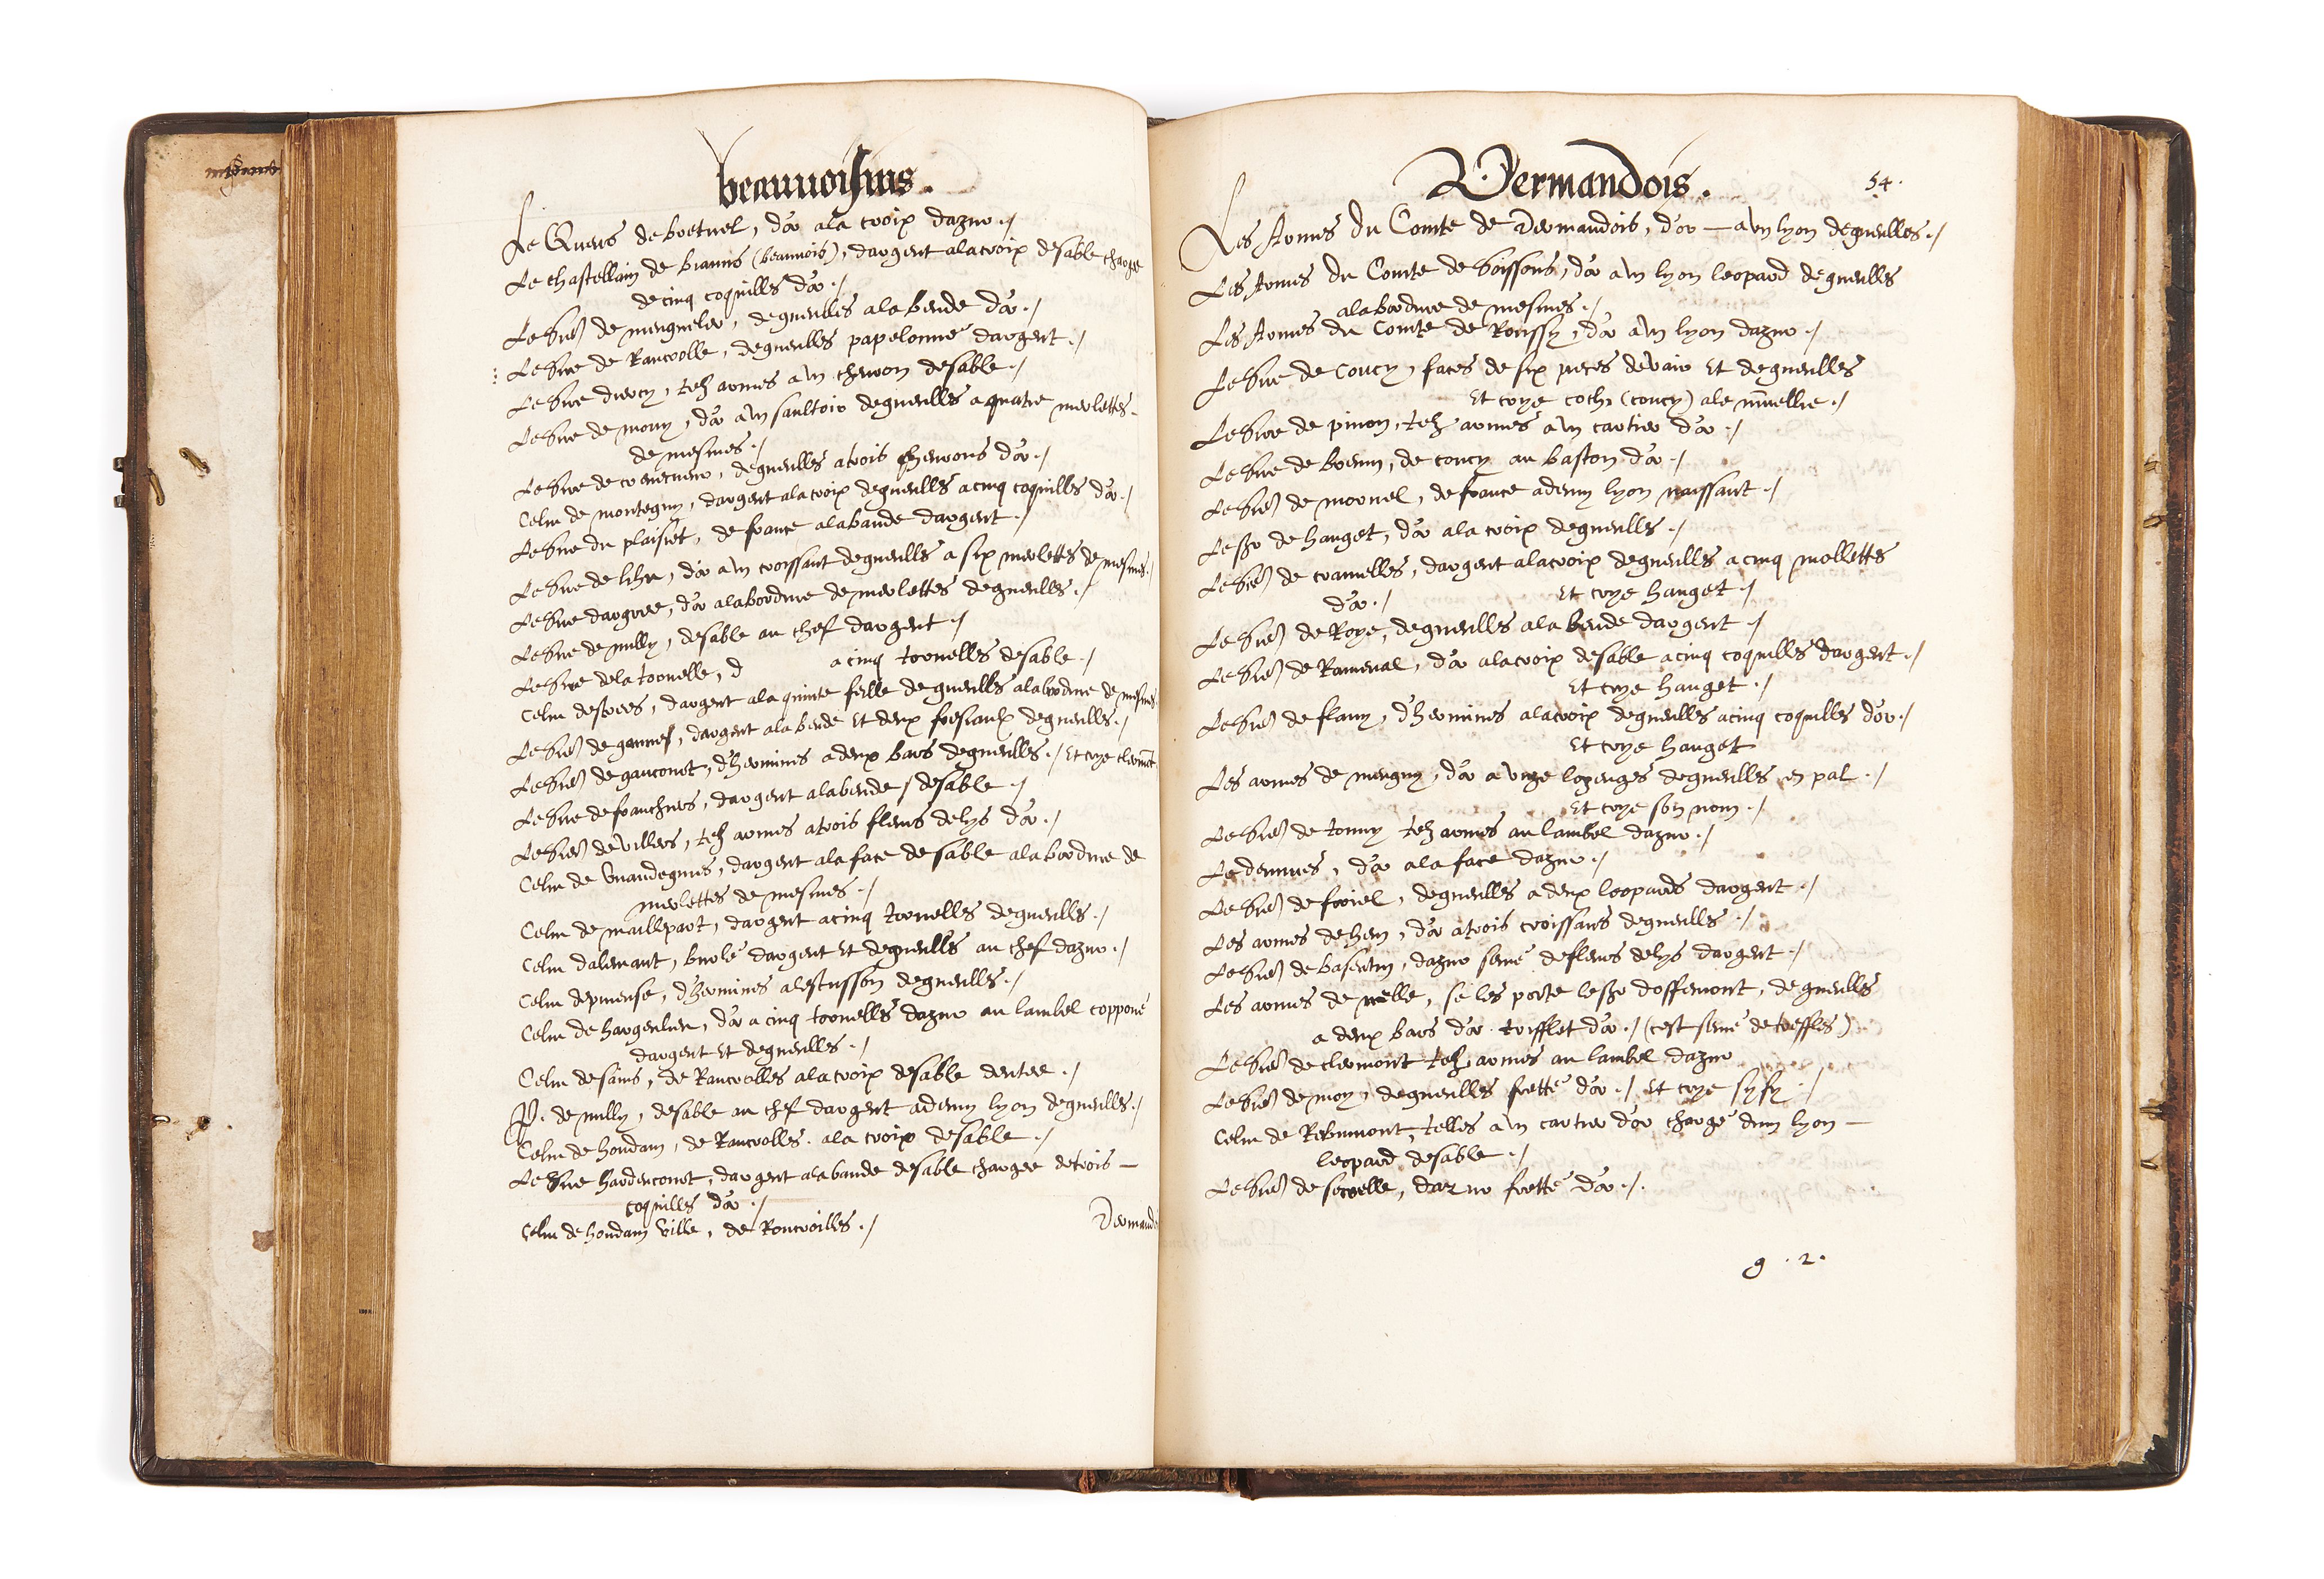 beauvoisins.
Le Quens de bretuel, d'or ala croix dazur ./
Le chastellain de biauvs (beauuois), dargent alacroix desable chargee
de cinq coquilles d'or ./
Le Sire de mengneler, degueulles ala bende d'or ./
Le Sire de Rancrolle, degueulles papelonné dargent ./
Le Sire diucy, telz armes a vn cheuron desable ./
Le Sire de mouy, d'or a vn saultoir degueulles a quatre merlettes
de mesmes ./
Le Sire de creuecueur, degueulles atrois cheurons d'or ./
Celui de montegny, dargent alacroix degueulles acinq coquilles d'or ./
Le Sire du plaisiet, de france alabande dargent ./
Le Sire de lihu, d'or a vn croissant degueulles a six merlettes de mesmes ./
Le Sire dargies, d'or alabordure de merlettes degueulles ./
Le Sire de milly, desable au chef dargent ./
Le Sire dela tornelle, d acinq tornelles desable ./
Celui destrees, dargent ala quinte feille degueulles alabordure de mesmes
Le Sire de gannes, dargent ala bende et deux fresiaulx degueulles ./
Le Sire de gauconrt, d'hermines adeux bars degueulles ./ Et crye clermont
Le Sire de franchures, dargent alabende desable ./
Le Sire de villers, telz armes atrois fleurs delys d'or ./
Celui de vuandegnies, dargent ala face desable alabordure de
merlettes de mesmes ./
Celui de maillepart, dargent acinq tornelles degueulles ./
Celui dalemant, burelé dargent et degueulles au chef dazur ./
Celui depreuse, d'hermines alescusson degueulles ./
Celui de hargenlieu, d'or a cinq tornelles dazur au lambel copponé
dargent et degueulles ./
Celui desains, de Rancrolles alacroix desable dentee ./
P. de milly, desable au chef dargent ademy lyon degueulles ./
Celui de houdain, de Rancrolles ala croix desable ./
Le Sire hardencourt, dargent alabande desable chargee detrois —
coquilles d'or ./
Celui de houdain ville, de Roncroilles ./
Vermando
Vermandois.
54.
Les Armes du Comte de Vermandois, d'or — a vn lyon degueulles ./
Les Armes du Comte de Soissons, d'or a vn lyon leopard degueulles
alabordure de mesmes ./
Les Armes du Comte de Roussy, d'or a vn lyon dazur ./
Le Sire de Coucy, faces de six pieces devair et degueulles
Et crye cochi (coucy) ale muellie ./
Le Sire de pinon, telz armes a vn cartier d'or ./
Le Sire de boemu, de coucy au baston d'or ./
Le Sire de mornel, de france ademy lyon naissant ./
Le Sr de hanget, d'or ala croix degueulles ./
Le Sire de cramelles, dargent alacroix degueulles a cinq mollettes
d'or ./ Et crye hanget ./
Le Sire de Roye, degueulles ala bende dargent ./
Le Sire de Raineual, d'or alacroix desable acinq coquilles dargent ./
Et crye hanget ./
Le Sire de flauy, d'hermines alacroix degueulles acinq coquilles d'or ./
Et crye hanget
Les armes de meugny, d'or a vnze lozenges degueulles en pal ./
Et crye son nom ./
Le Sire de tonny telz armes au lambel dazur ./
Le dennes, d'or ala face dazur ./
Le Sire de foiel, degueulles a deux leopards dargent ./
Les armes de hem, d'or atrois croissans degueulles ./
Le Sire de basentin, dazur semé defleurs delys dargent ./
Les armes de neelle, se les porte le Sr doffemont, degueulles
a deux bars d'or trifflet d'or ./ (cest semé de treffles)
Le Sire de clermont telz armes au lambel dazur
Le Sire de moy, degueulles fretté d'or ./ Et crye syfy ./
Celui de Ribemont, telles a vn cartier d'or chargé dun lyon —
leopard desable ./
Le Sire de sercelle, dazur fretté d'or ./.
g . 2 .